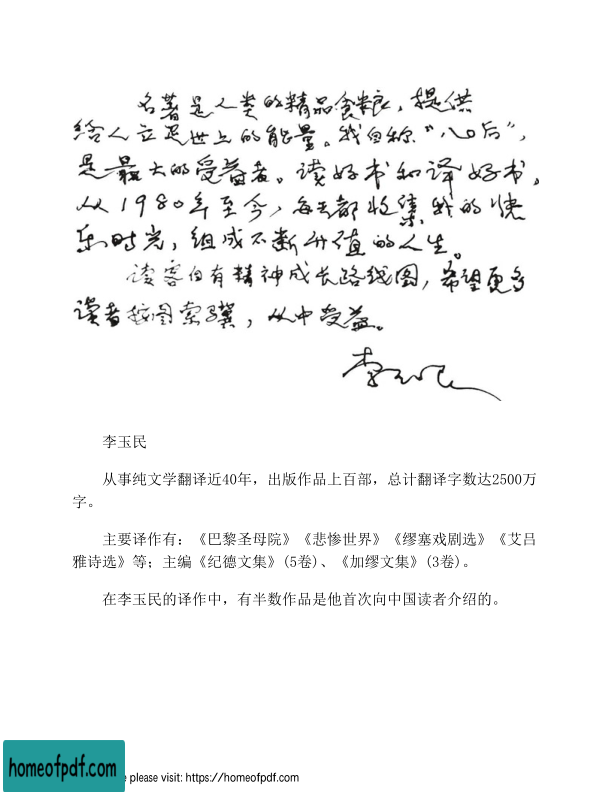 名著是人类的精品食粮，提供
给人立足世上的能量。我自称“八〇后”，
是最大的受益者。读好书和译好书，
从1980年至今，每天都收集我的快
乐时光，组成不断升值的人生。
读客自有精神成长路线图，希望更多
读者按图索骥，从中受益。
李玉民
李玉民
从事纯文学翻译近40年，出版作品上百部，总计翻译字数达2500万
字。
主要译作有：《巴黎圣母院》《悲惨世界》《缪塞戏剧选》《艾吕
雅诗选》等；主编《纪德文集》(5卷)、《加缪文集》(3卷)。
在李玉民的译作中，有半数作品是他首次向中国读者介绍的。
homeofpdf.com
e please visit: https://homeofpdf.com